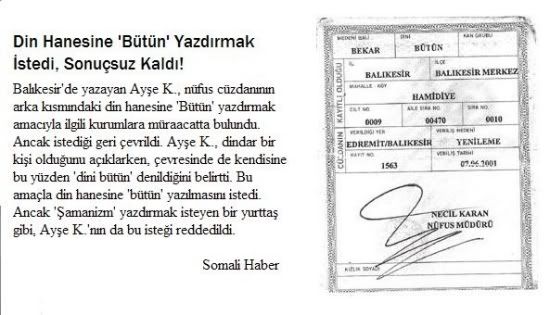 Din Hanesine 'Bütün' Yazdırmak
İstedi, Sonuçsuz Kaldı!
Balıkesir'de yazayan Ayşe K., nüfus cüzdanının
arka kısmındaki din hanesine 'Bütün' yazdırmak
amacıyla ilgili kurumlara müraacatta bulundu.
Ancak istediği geri çevrildi. Ayşe K., dindar bir
kişi olduğunu açıklarken, çevresinde de kendisine
bu yüzden 'dini bütün' denildiğini belirtti. Bu
amaçla din hanesine 'bütün' yazılmasını istedi.
Ancak 'Şamanizm' yazdırmak isteyen bir yurttaş
gibi, Ayşe K.'nın da bu isteği reddedildi.
Somali Haber
MEDENİ HALİ DİNİ KAN GRUBU
BEKAR BÜTÜN
İL İLÇE
BALIKESİR BALIKESİR MERKEZ
MAHALLE - KÖY
HAMİDİYE
CİLT NO AİLE SIRA NO SIRA NO
0009 00470 0010
VERİLDİĞİ YER VERİLİŞ NEDENİ
EDREMİT/BALIKESİR YENİLEME
KAYIT NO VERİLİŞ TARİHİ
1563 07.06.2001
CÜZDANIN KAYITLI OLDUĞU
NECİL KARAN
NÜFUS MÜDÜRÜ
KIZLIK SOYADI